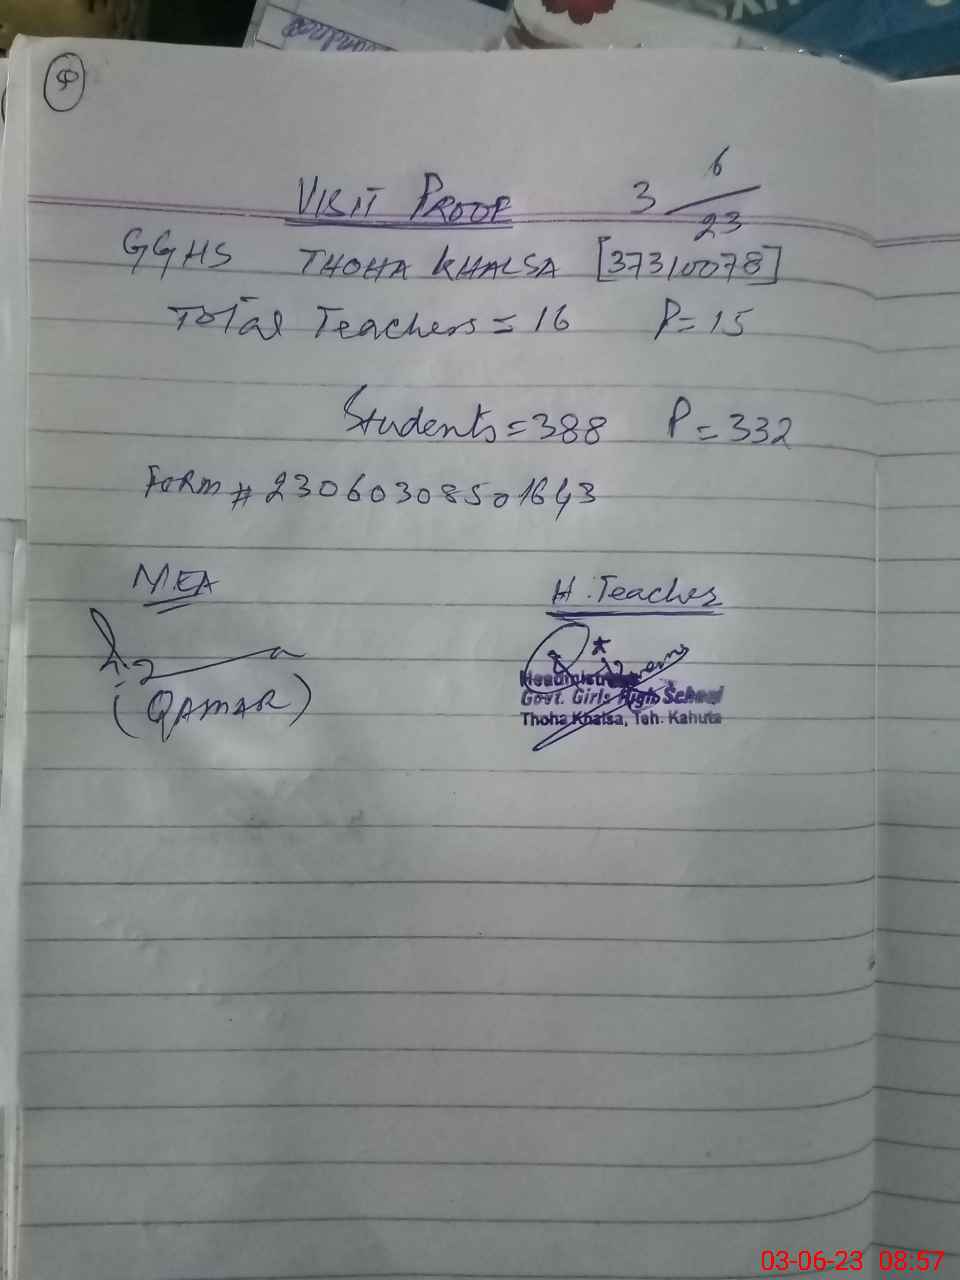 VISIT PROOF 3 6/23
GGHS THOHA KHALSA [37310078]
Total Teachers = 16 P = 15
Students = 388 P = 332
Form # 23060308501643
MEA
H. Teacher
(QAMAR)
Headmistress
Govt. Girls High School
Thoha Khalsa, Teh. Kahuta
03-06-23 08:57